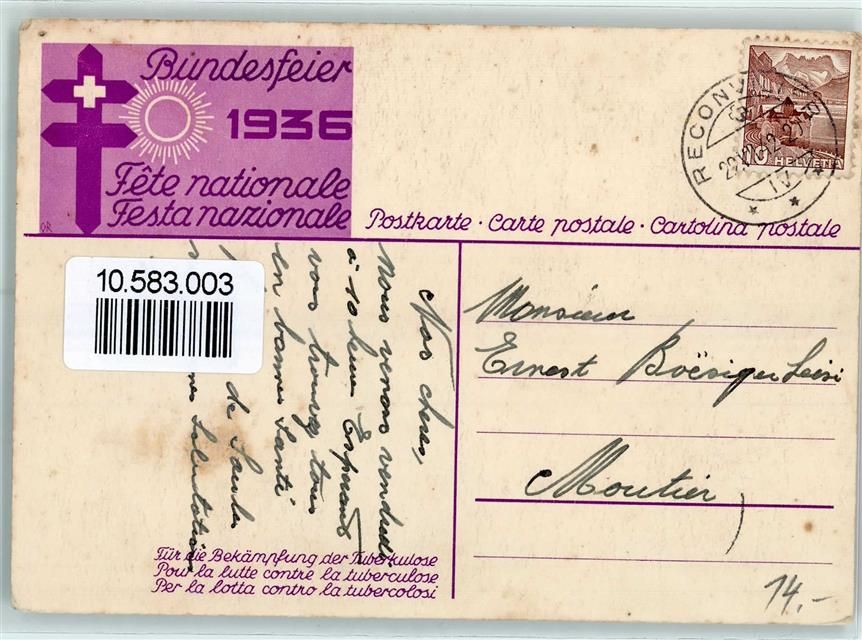 Bundesfeier
1936
Fête nationale
Festa nazionale
OR
Postkarte · Carte postale · Cartolina postale
RECONV
10 HELVETIA
10.583.003
Nos chers,
Nous venons vendredi
à 10 heures Esperant
vous trouvez tous
en bonnes Santé
de
Salutations
Monsieur
Ernest Boësiger Leisi
Moutier
Für die Bekämpfung der Tuberkulose
Pour la lutte contre la tuberculose
Per la lotta contro la tubercolosi
14.-